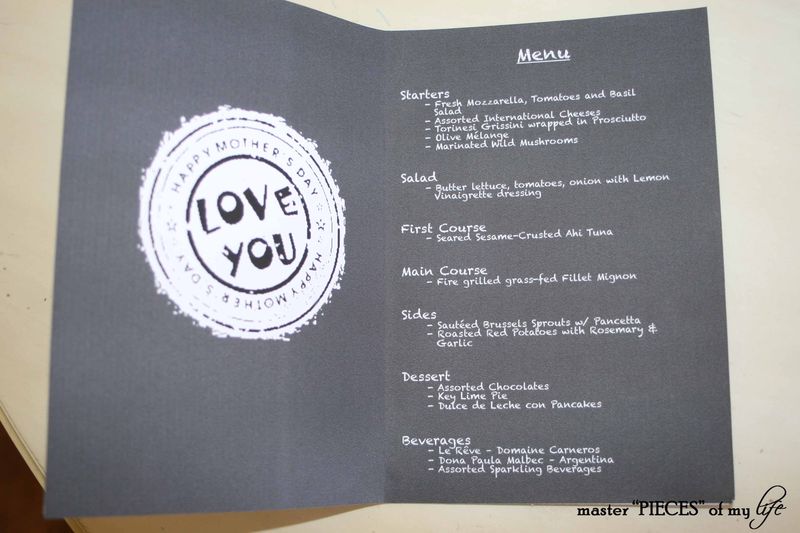 HAPPY MOTHER'S DAY
LOVE
YOU
HAPPY MOTHER'S DAY
Menu
Starters
- Fresh Mozzarella, Tomatoes and Basil
Salad
- Assorted International Cheeses
- Torinesi Grissini wrapped in Prosciutto
- Olive Mélange
- Marinated Wild Mushrooms
Salad
- Butter lettuce, tomatoes, onion with Lemon
Vinaigrette dressing
First Course
- Seared Sesame-Crusted Ahi Tuna
Main Course
- Fire grilled grass-fed Fillet Mignon
Sides
- Sautéed Brussels Sprouts w/ Pancetta
- Roasted Red Potatoes with Rosemary &
Garlic
Dessert
- Assorted Chocolates
- Key Lime Pie
- Dulce de Leche con Pancakes
Beverages
- Le Rêve - Domaine Carneros
- Dona Paula Malbec - Argentina
- Assorted Sparkling Beverages
master "PIECES" of my life